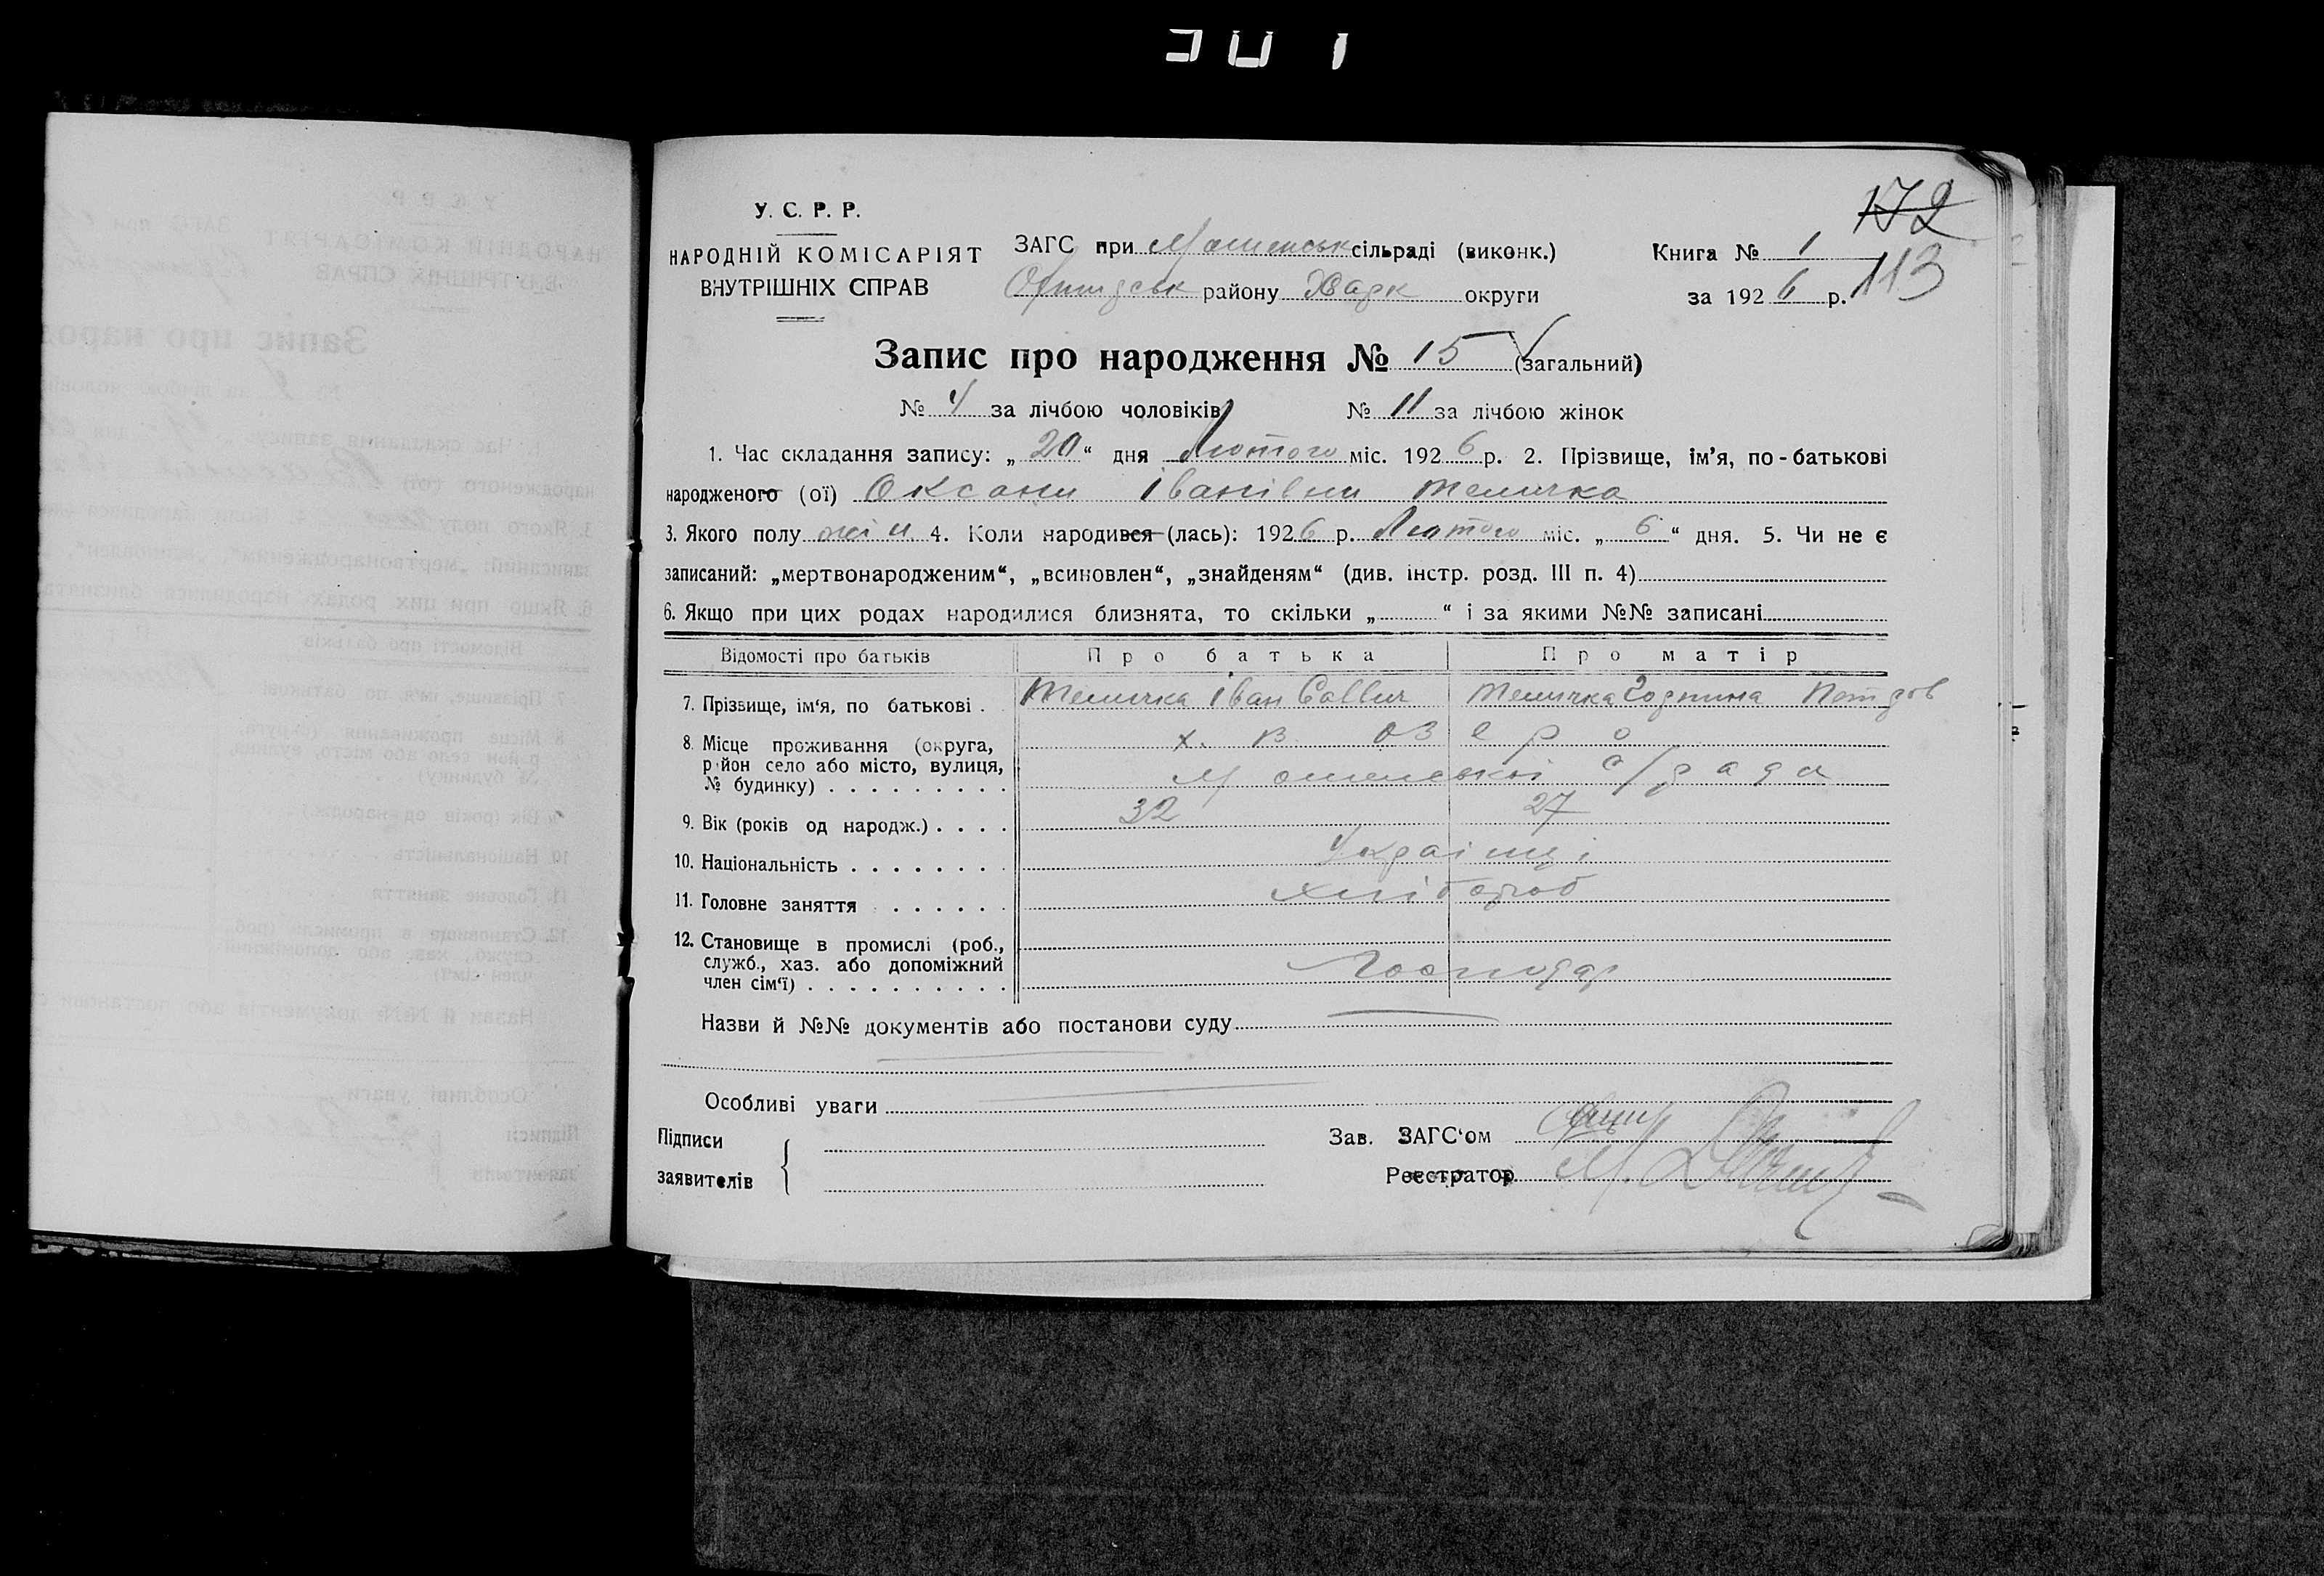 У. С. Р. Р.
НАРОДНІЙ КОМІСАРІЯТ
ВНУТРІШНІХ СПРАВ
ЗАГС при сільраді (виконк.)
району Харк округи
172
Книга № 1
за 1926 р. 113
Запис про народження № 15 (загальний)
№ 4 за лічбою чоловіків № 11 за лічбою жінок
1. Час складання запису: „20“ дня Лютого міс. 1926 р. 2. Прізвище, ім’я, по-батькові
народженого (ої) Оксани Іванівни Теличка
3. Якого полу жін 4. Коли народився (лась): 1926 р. Лютого міс. „6“ дня. 5. Чи не є
записаний: „мертвонародженим“, „всиновлен“, „знайденям“ (див. інстр. розд. III п. 4)
6. Якщо при цих родах народилися близнята, то скільки „ “ і за якими №№ записані
Відомості про батьків Про батька Про матір
7. Прізвище, ім‘я, по батькові . Теличка Іван Теличка
8. Місце проживання (округа, х. Озеро
район село або місто, вулиця,
№ будинку) . . . . . . . . . с/ради
9. Вік (років од народж.) . . . . 32 27
10. Національність . . . . . . . Українці
11. Головне заняття . . . . . . хлібороб
12. Становище в промислі (роб.,
служб., хаз. або допоміжний Господар
член сім‘ї) . . . . . . . . . .
Назви й №№ документів або постанови суду
Особливі уваги
Підписи
заявителів
Зав. ЗАГС‘ом
Реєстратор